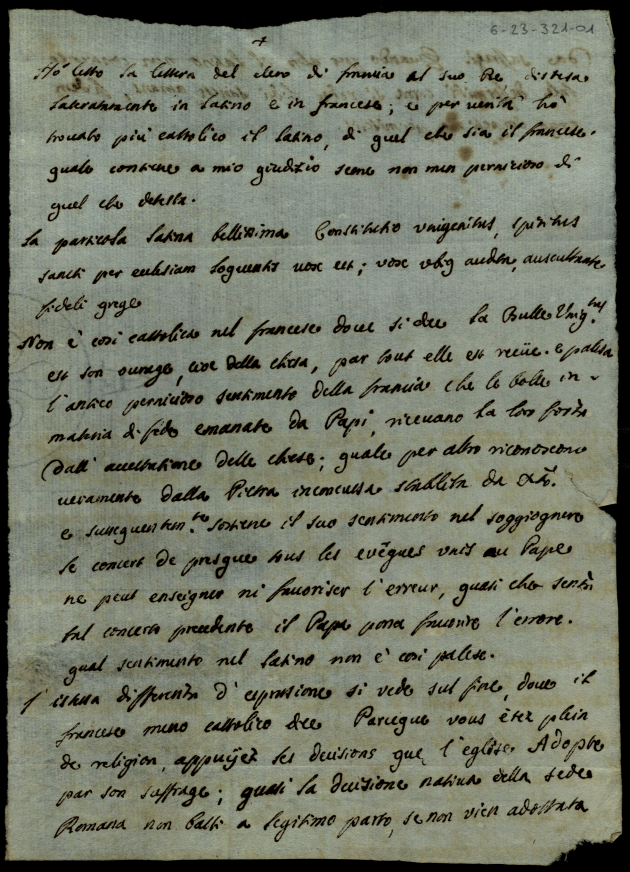 6-23-321-01
+
Hò letto la lettera del clero di francia al suo Re, distesa
lateralmente in latino e in francese; e per verità hò
trovato più cattolico il latino, di quel che sia il francese.
quale contiene a mio giudizio seme non men pernicioso di
quel che detesta.
La particola latina bellissima Constitutio unigenitus, spiritus
sancti per ecclesiam loquentis vox est; vox ubiq audita, auscultante
fideli grege
Non è così cattolica nel francese dove si dice la Bulle Unig.tus
est son ouvrage, cioè della chiesa, par tout elle est reçüe. e palesa
l'antico pernicioso sentimento della francia che le bolle in
materia di fede emanate da Papi, ricevano la loro forza
dall' accettatione delle chiese; quale per altro riconoscono
veramente dalla Pietra inconcussa stabilita da Xto.
e susseguentem.te sostiene il suo sentimento nel soggiognere
le concert de presque tous les evêques unis au Pape
ne peut enseigner ni favoriser l'erreur, quasi che senza
tal concerto precedente il Papa possa favorire l'errore.
qual sentimento nel latino non è così palese.
l'istessa differenza d'espressione si vede sul fine, dove il
francese meno cattolico dice Parceque vous êtez plein
de religion, appuijez les decisions que l'eglise Adopte
par son suffrage; quasi la decisione nativa della sede
Romana non basti a legitimo parto, se non vien adottata